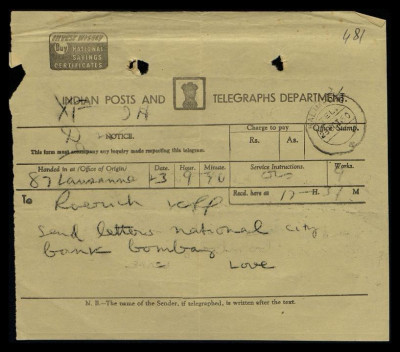 INVEST WISELY
Buy NATIONAL
SAVINGS
CERTIFICATES
481
INDIAN POSTS AND TELEGRAPHS DEPARTMENT.
NOTICE.
This form must accompany any inquiry made respecting this telegram.
Charge to pay
Rs. As.
Office Stamp.
Handed in at (Office of Origin) Date Hour. Minute. Service Instructions. Words.
87 Lausanne
Recd. here at H. M
To Roerich
Send letters national city
bank bombay
Love
N. B.—The name of the Sender, if telegraphed, is written after the text.